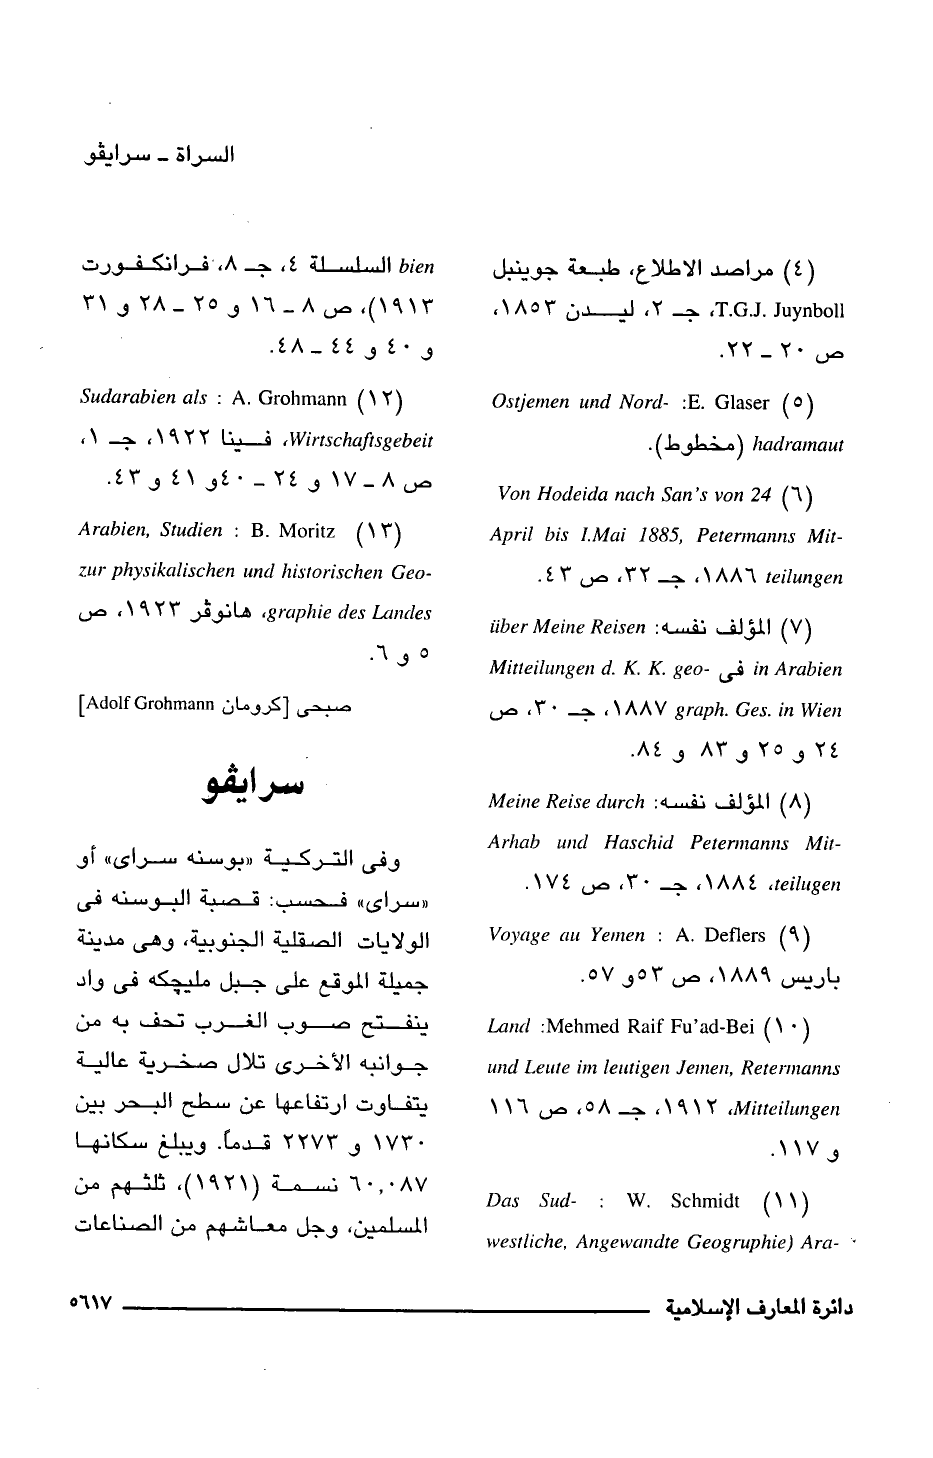 السراة ـ سرايڤو
(٤) مراصد الاطلاع، طبعة جوينبل
T.G.J. Juynboll، جـ ٢، ليدن ١٨٥٣،
ص ٢٠ ـ ٢٢.
(٥) E. Glaser: Ostjemen und Nord-
hadramaut (مخطوط).
(٦) Von Hodeida nach San's von 24
April bis I.Mai 1885, Petermanns Mit-
teilungen ١٨٨٦، جـ ٣٢، ص ٤٣.
(٧) المؤلف نفسه: über Meine Reisen
in Arabien فى Mitteilungen d. K. K. geo-
graph. Ges. in Wien ١٨٨٧، جـ ٣٠، ص
٢٤ و ٢٥ و ٨٣ و ٨٤.
(٨) المؤلف نفسه: Meine Reise durch
Arhab und Haschid Petermanns Mit-
teilugen، ١٨٨٤، جـ ٣٠، ص ١٧٤.
(٩) A. Deflers : Voyage au Yemen
باريس ١٨٨٩، ص ٥٣و ٥٧.
(١٠) Mehmed Raif Fu'ad-Bei: Land
und Leute im leutigen Jemen, Retermanns
Mitteilungen، ١٩١٢، جـ ٥٨، ص ١١٦
و ١١٧.
(١١) W. Schmidt : Das Sud-
westliche, Angewandte Geogruphie) Ara-
bien السلسلة ٤، جـ ٨، فرانكفورت
١٩١٣)، ص ٨ ـ ١٦ و ٢٥ ـ ٢٨ و ٣١
و ٤٠ و ٤٤ ـ ٤٨.
(١٢) A. Grohmann : Sudarabien als
Wirtschaftsgebeit، فينا ١٩٢٢، جـ ١،
ص ٨ ـ ١٧ و ٢٤ ـ ٤٠و ٤١ و ٤٣.
(١٣) B. Moritz : Arabien, Studien
zur physikalischen und historischen Geo-
graphie des Landes، هانوڤر ١٩٢٣، ص
٥ و ٦.
صبحى [كرومان Adolf Grohmann]
سرايڤو
وفى التركية «بوسنه سراى» أو
«سراى» فحسب: قصبة البوسنه فى
الولايات الصقلية الجنوبية، وهى مدينة
جميلة الموقع على جبل مليچكه فى واد
ينفتح صوب الغرب تحف به من
جوانبه الأخرى تلال صخرية عالية
يتفاوت ارتفاعها عن سطح البحر بين
١٧٣٠ و ٢٢٧٣ قدماً. ويبلغ سكانها
٦٠,٠٨٧ نسمة (١٩٢١)، ثلثهم من
المسلمين، وجل معاشهم من الصناعات
دائرة المعارف الإسلامية ٥٦١٧